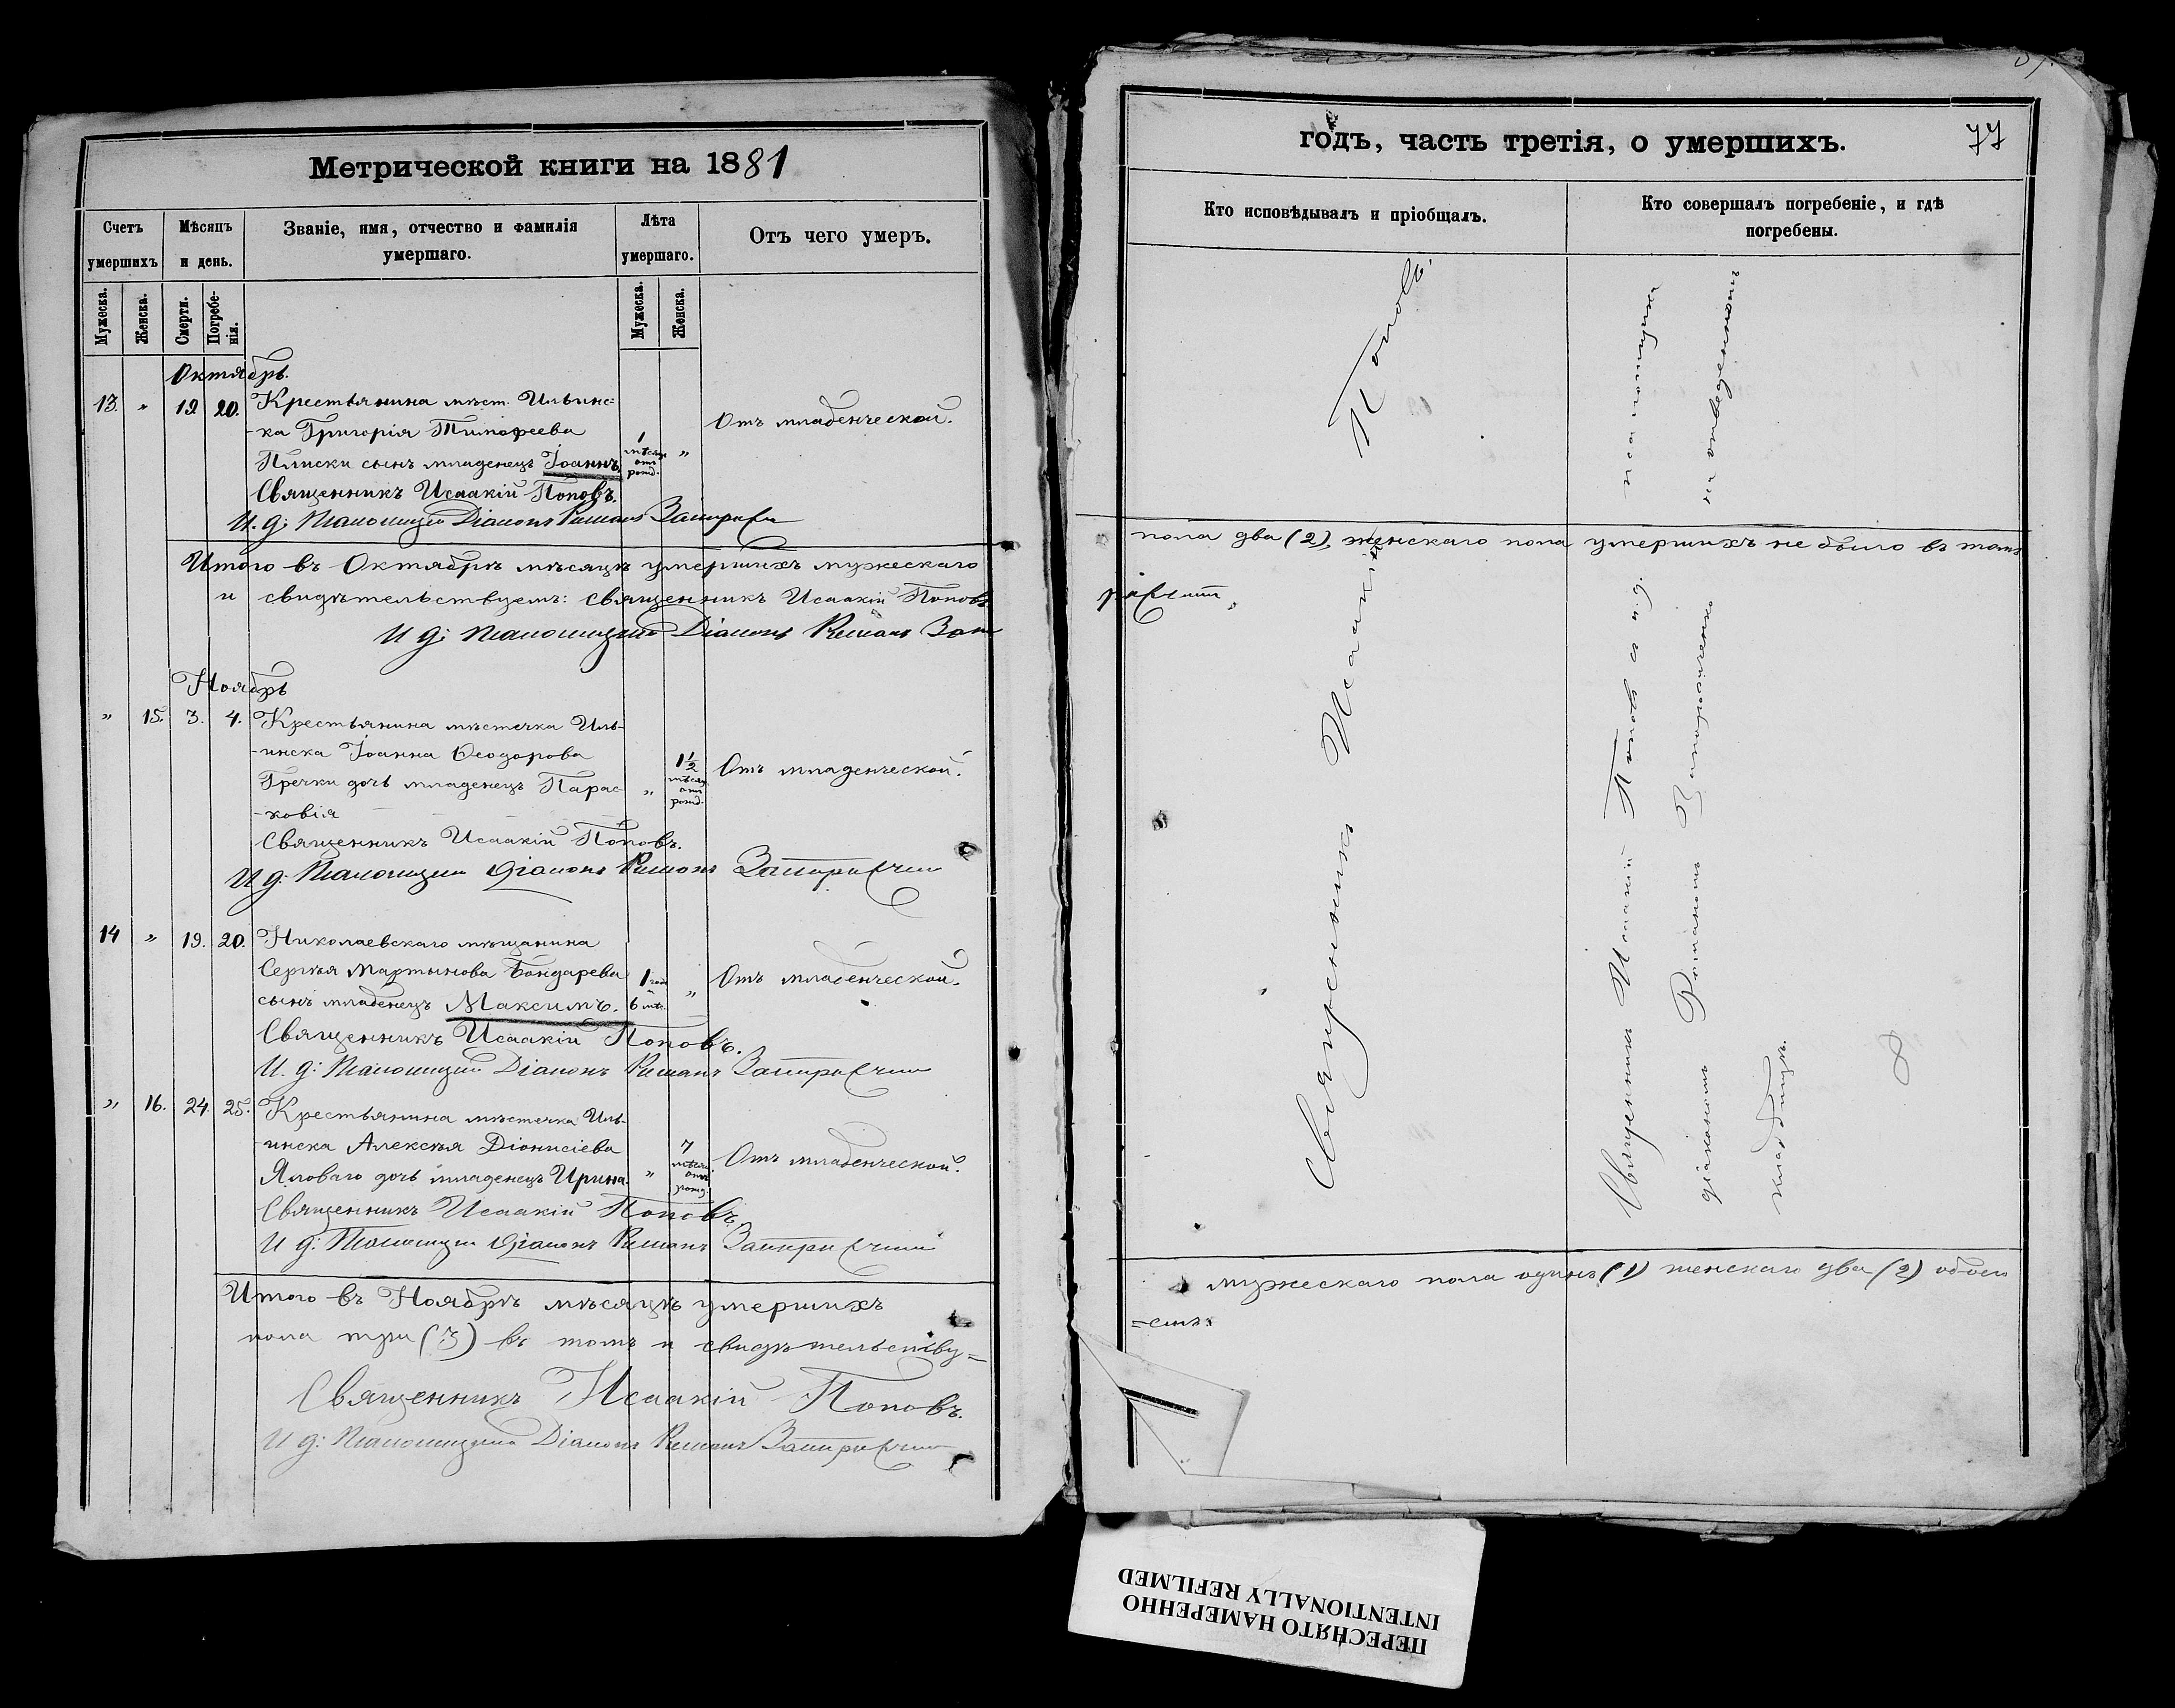 Метрической книги на 1881
Счетъ умершихъ
Мѣсяцъ и день.
Званіе, имя, отчество и фамилія умершаго.
Лѣта умершаго.
Отъ чего умеръ.
Мужеска.
Женска.
Смерти.
Погребе-
нія.
Мужеска.
Женска.
Октябрь.
13. „ 19 20. Крестьянина мѣст. Ильинс-
-ка Григорія Тимофеева
Плиски сынъ младенецъ Іоаннъ.
1 мѣсяц. отъ рожд. „ Отъ младенческой.
Священникъ Исаакій Поповъ.
И. д: Псаломщика Діаконъ Романъ
Итого въ Октябрѣ мѣсяцѣ умершихъ мужескаго
и свидѣтельствуемъ: Священникъ Исаакій Поповъ
И д: Псаломщика Діаконъ Романъ
Ноябрь
„ 15. 3. 4. Крестьянина мѣстечка Иль-
-инска Іоанна Ѳеодорова
Гречки дочь младенецъ Парас-
-ковія
„ 1½ мѣсяц. отъ рожд. Отъ младенческой.
Священникъ Исаакій Поповъ.
И д: Псаломщика Діаконъ Романъ
14 „ 19. 20. Николаевскаго мѣщанина
Сергѣя Мартынова Бондарева
сынъ младенецъ Максимъ.
1 годъ 6 мѣс. „ Отъ младенческой.
Священникъ Исаакій Поповъ.
И. д: Псаломщика Діаконъ Романъ
„ 16. 24. 25. Крестьянина мѣстечка Иль-
-инска Алексѣя Діонисіева
Яловаго дочь младенецъ Ирина.
„ 7 мѣсяц. отъ рожд. Отъ младенческой.
Священникъ Исаакій Поповъ.
И д: Псаломщика Діаконъ Романъ
Итого въ Ноябрѣ мѣсяцѣ умершихъ
пола три (3) въ томъ и свидѣтельству=
Священникъ Исаакій Поповъ.
И д: Псаломщика Діаконъ Романъ
годъ, часть третія, о умершихъ.
77
Кто исповѣдывалъ и пріобщалъ.
Кто совершалъ погребеніе, и гдѣ погребены.
Священникъ Исаакій Поповъ.
Священникъ Исаакій Поповъ съ и. д. псаломщика
діакономъ Романомъ на отведенномъ
кладбищѣ.
пола два (2), женскаго пола умершихъ не было въ томъ
мужескаго пола одинъ (1) женскаго два (2) обоего
=емъ:
ПЕРЕСНЯТО НАМЕРЕННО
INTENTIONALLY REFILMED